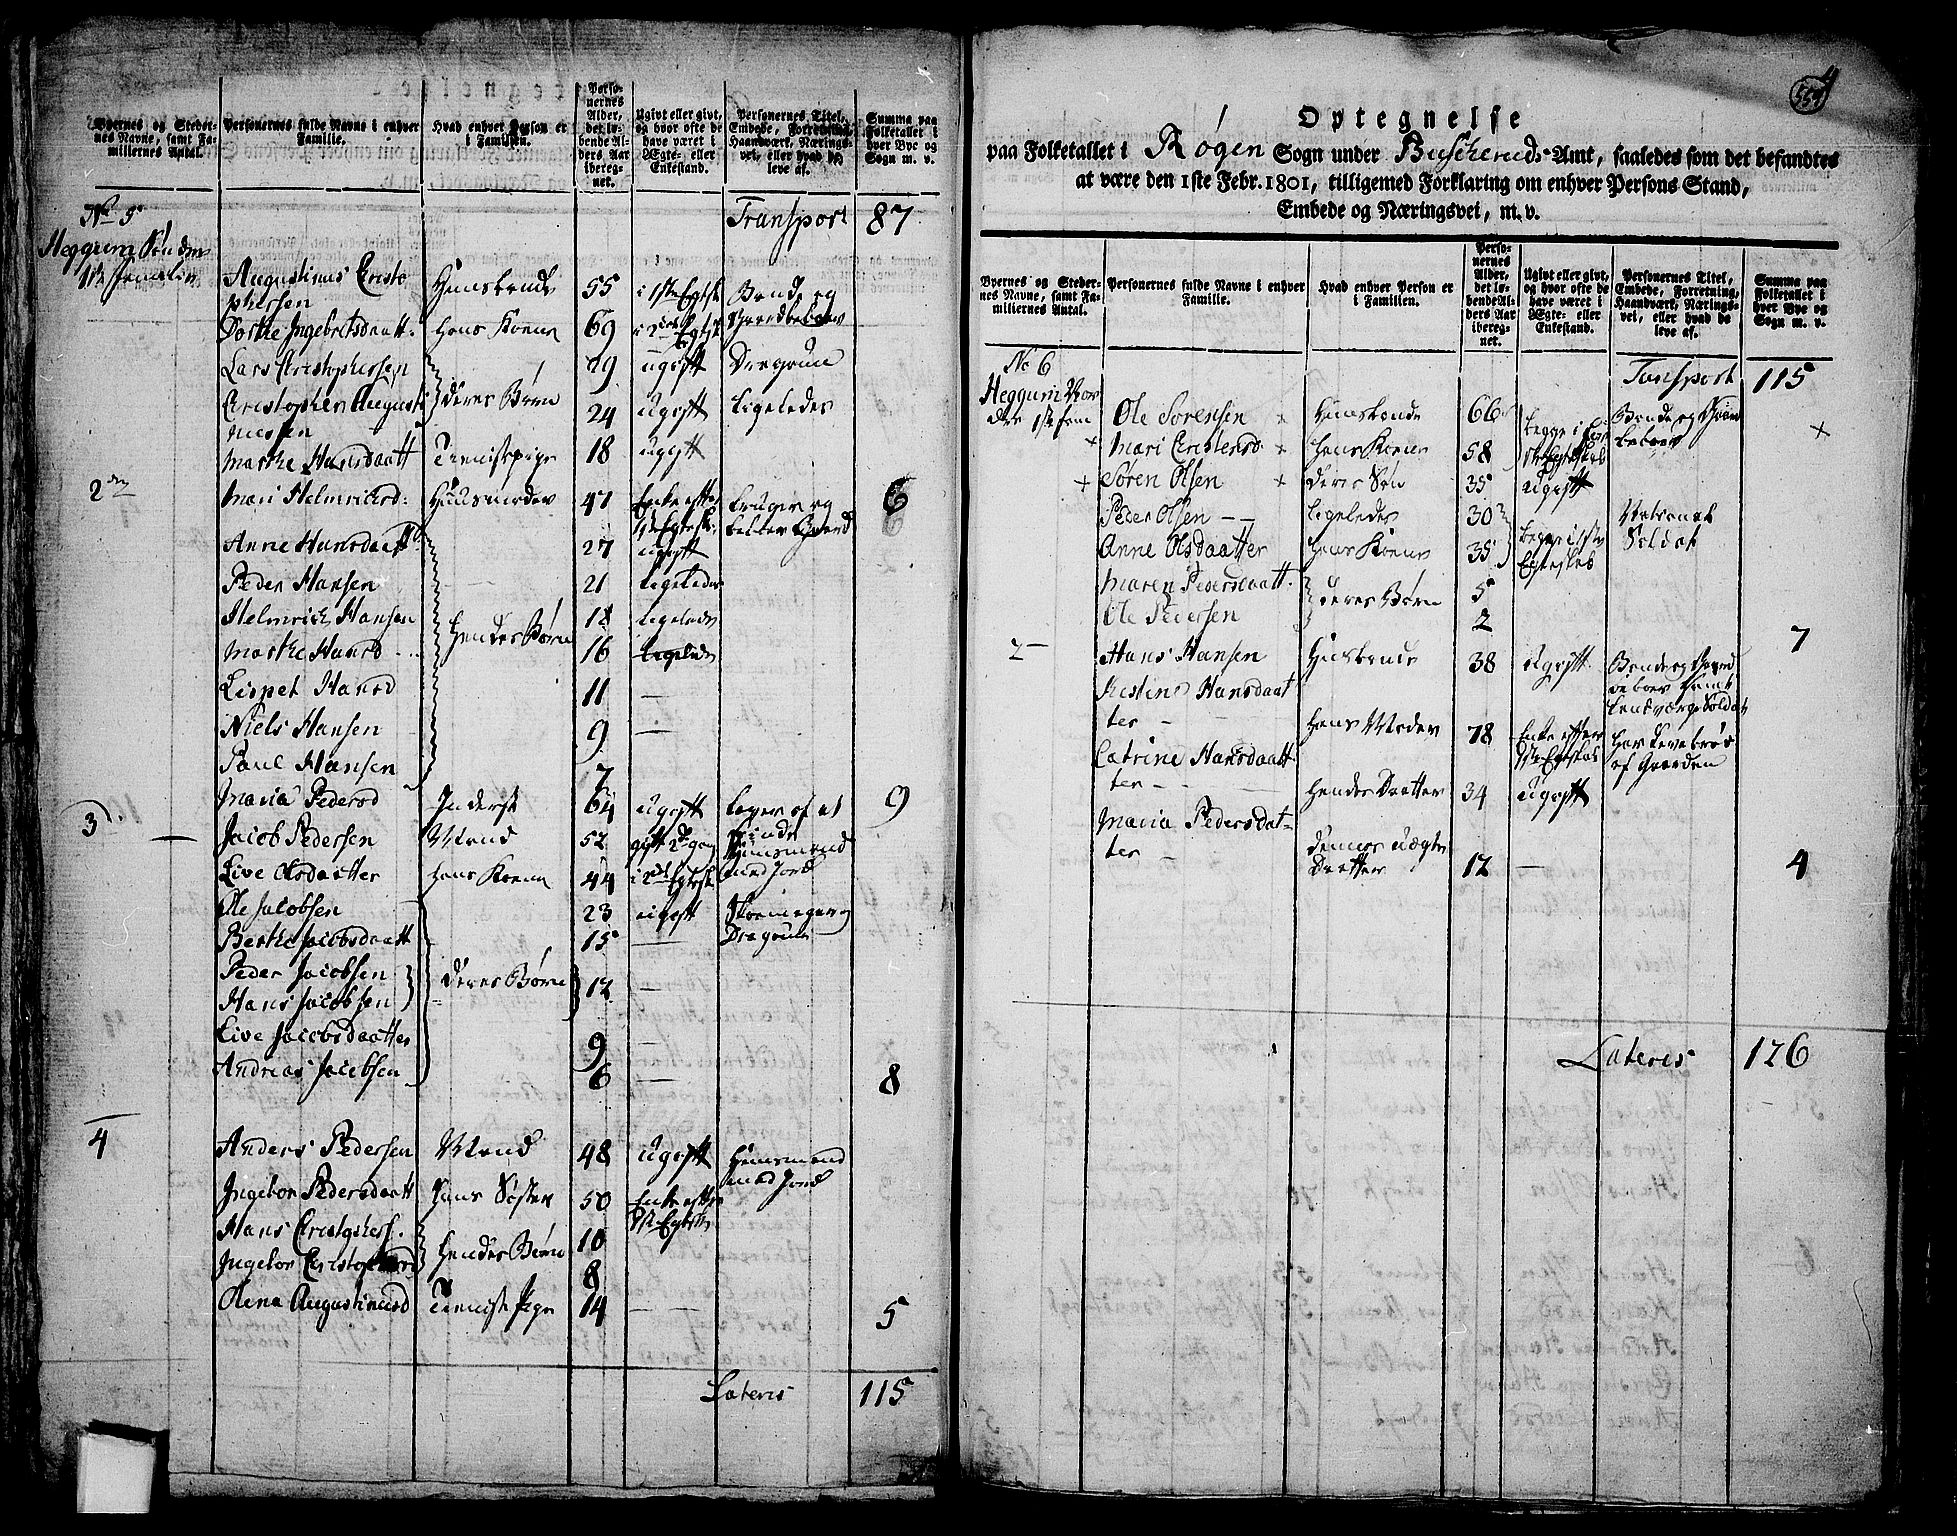 Byernes og Steder-
nes Navne, samt Fa-
miliernes Antal.
Personernes fulde Navne i enhver
Familie.
Hvad enhver Person er
i Familien.
Perso-
nernes
Alder,
det lø-
bende Al-
ders Aar
ibereg-
net.
Ugivt eller givt,
og hvor ofte de
have været i
Ægte- eller
Enkestand.
Personernes Titel,
Embede, Forretning,
Haandværk, Nærings-
vei, eller hvad de
leve af.
Summa paa
Folketallet i
hver Bye og
Sogn m. v.
No 5
Transport 87
Heggum Søndre
1ste familie
Augustinus Cristo
phersen Huusbonde 55 i 1ste Egtsk Bonde og
Dorthe Ingebretsdaatt. hans Kone 69 i 2det Egtsk Gaardbeboer
Lars Cristophersen 29 ugift Dragoun
Cristopher Augusti
nussen deres Børn 24 ugift ligeledes
Marthe Hansdaatt Tienistepige 18 ugift
6
2den Mari Helmrichsd. Huusmoder 47 Enke efter
1ste Egtesk. bruger og
Anne Hansdaatt 27 ugift
Peder Hansen 21 ligeledes
Helmrich Hansen 18 ligeleds
hendes Børn
Marthe Hansd 16 ligeleds
Lispet Hansd 11 —
Niels Hansen 9 —
Paul Hansen 7
Maria Pedersd Inderst 64 ugift lever af at
spinde 9
3 Jacob Pedersen Mand 52 gift 2den gang Huusmand
Live Olsdaatter hans Kone 44 i 2det Egtesk med Jord
Ole Jacobsen 23 ugift
Berthe Jacobsdaatt 15 — Dragoun
Peder Jacobsen
Hans Jacobsen deres Børn 12 —
Live Jacobsdaatter 9 —
Andreas Jacobsen 6 — 8
4 Anders Pedersen Mand 48 ugift Huusmand
med Jord
Ingebor Pedersdaatt hans Søster 50 Enke efter
1ste Egtesk
Hans Cristophers. 10
hendes Børn
Ingebor 8
Olena Augustinusd Tieniste Pige 14 — — 5
Lateris 115
554
4
Optegnelse
paa Folketallet i Røgen Sogn under Buscheruds Amt, saaledes som det befandtes
at være den 1ste Febr. 1801, tilligemed Forklaring om enhver Persons Stand,
Embede og Næringsvei, m. v.
Byernes og Steder-
nes Navne, samt Fa-
miliernes Antal.
Personernes fulde Navne i enhver
Familie.
Hvad enhver Person er
i Familien.
Perso-
nernes
Alder,
det lø-
bende Al-
ders Aar
ibereg-
net.
Ugivt eller givt,
og hvor ofte de
have været i
Ægte- eller
Enkestand.
Personernes Titel,
Embede, Forretning,
Haandværk, Nærings-
vei, eller hvad de
leve af.
Summa paa
Folketallet i
hver Bye og
Sogn m. v.
No 6 Transport 115
Heggum Nor
dre 1ste fam Ole Sørensen × Huusbonde 66 begge i før
ste Egteskab Bonde og Gaard
beboer ×
× Mari Cristensd × hans Kone 58
× Søren Olsen × deres Søn 35 ugift
Peder Olsen — ligeledes 30 begge i 1ste
Egteskab Nationat
Soldat
Anne Olsdaatter hans Kone 35
Maren Pedersdaatt. deres Børn 5
Ole Pedersen 2 7
2 — Hans Hansen Huusbonde 38 ugift Bonde og Gaard
beboer samt
Landværgs Soldat
Kestine Hansdaat
ter — hans Moder 78 Enke efter
1ste Egteskab har Levebrød
af Gaarden
Catrine Hansdaatt
ter — hendes Datter 34 ugift
Maria Pedersdat-
ter — dennes uægte
Datter 12 — 4
Lateris 126